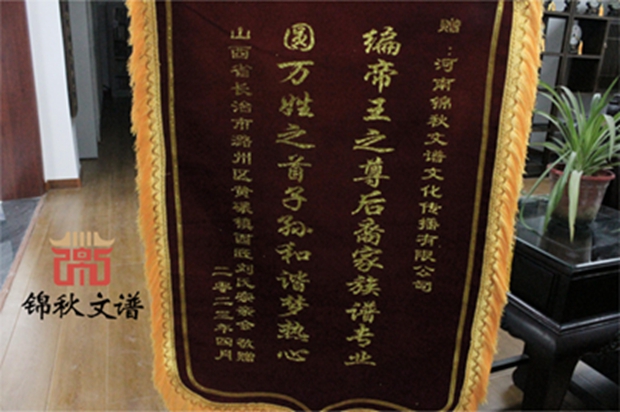 赠：河南锦秋文谱文化传播有限公司
编帝王之尊后裔家族谱专业
圆万姓之首子孙和谐梦热心
山西省长治市潞州区黄碾镇西旺刘氏宗亲会 敬赠
二零二三年四月
锦秋文谱